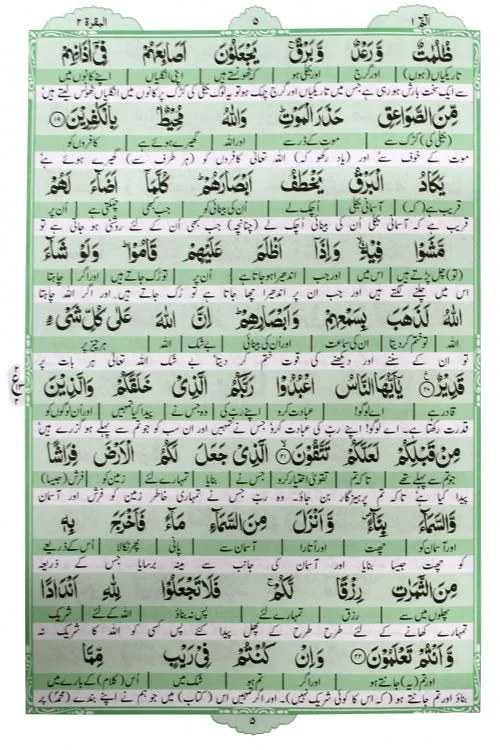 الٓمّٓ ١
٥
البقرة ٢
ظُلُمٰتٌ وَّرَعْدٌ وَّبَرْقٌ ۚ يَجْعَلُوْنَ اَصَابِعَهُمْ فِيْۤ اٰذَانِهِمْ
تاریکیاں (ہوں) | اور گرج | اور بجلی ہو | کہ ٹھونستے ہیں | اپنی انگلیاں | اپنے کانوں میں
سے ایک سخت بارش ہو رہی ہے جس میں تاریکیاں اور گرج چمک ہو تو یہ لوگ بجلی کی کڑک پر کانوں میں انگلیاں ٹھونس لیتے ہیں
مِّنَ الصَّوَاعِقِ حَذَرَ الْمَوْتِ ؕ وَاللّٰهُ مُحِيْطٌۢ بِالْكٰفِرِيْنَ ﴿۱۹﴾
(بجلی کی) کڑک سے | موت کے ڈر سے | اور اللہ | گھیرے ہوئے ہے | کافروں کو
موت کے خوف سے اور (یاد رکھو کہ) اللہ تعالیٰ کافروں کو (ہر طرف سے) گھیرے ہوئے ہے
يَكَادُ الْبَرْقُ يَخْطَفُ اَبْصَارَهُمْ ؕ كُلَّمَاۤ اَضَآءَ لَهُمْ
قریب ہے (کہ) | آسمانی بجلی | اُچک لے | اُن کی بینائی کو | جب بھی | چمکتی ہے | اُن پر
قریب ہے کہ آسمانی بجلی اُن کی بینائی اُچک لے (چنانچہ) جب بھی اُن کے لئے روشنی ہو جاتی ہے تو
مَّشَوْا فِيْهِ ۙۗ وَاِذَاۤ اَظْلَمَ عَلَيْهِمْ قَامُوْا ؕ وَلَوْ شَآءَ
(تو) چل پڑتے ہیں | اس میں | اور جب | اندھیرا ہو جاتا ہے | اُن پر | تو رُک جاتے ہیں | اور اگر | چاہتا
اس میں چلنے لگتے ہیں اور جب ان پر اندھیرا چھا جاتا ہے تو رُک جاتے ہیں۔ اور اگر اللہ چاہتا
اللّٰهُ لَذَهَبَ بِسَمْعِهِمْ وَاَبْصَارِهِمْ ؕ اِنَّ اللّٰهَ عَلٰى كُلِّ شَيْءٍ
اللہ | تو ختم کر دیتا | اُن کی سماعت | اور اُن کی بینائی | بے شک | اللہ | ہر چیز پر
تو ان کے سننے اور دیکھنے کی قوت ختم کر دیتا‘ بے شک اللہ تعالیٰ ہر بات پر
قَدِيْرٌ ﴿۲۰﴾ يٰۤاَيُّهَا النَّاسُ اعْبُدُوْا رَبَّكُمُ الَّذِيْ خَلَقَكُمْ وَالَّذِيْنَ
قادر ہے | اے لوگو! | عبادت کرو | اپنے ربّ کی | وہ جس نے | پیدا کیا تمہیں | اور اُن لوگوں کو
قدرت رکھتا ہے۔ اے لوگو! اپنے ربّ کی عبادت کرو جس نے تمہیں اور ان سب کو جو تم سے پہلے ہو گزرے ہیں‘
مِنْ قَبْلِكُمْ لَعَلَّكُمْ تَتَّقُوْنَ ﴿۲۱﴾ الَّذِيْ جَعَلَ لَكُمُ الْاَرْضَ فِرَاشًا
جو تم سے پہلے تھے | تاکہ تم | تقویٰ اختیار کرو | وہ جس نے | بنایا | تمہارے لئے | زمین کو | فرش (جیسا)
پیدا کیا ہے تاکہ تم پرہیزگار بن جاؤ۔ وہ ربّ جس نے تمہاری خاطر زمین کو فرش اور آسمان
وَّالسَّمَآءَ بِنَآءً ۪ وَّاَنْزَلَ مِنَ السَّمَآءِ مَآءً فَاَخْرَجَ بِهٖ
اور آسمان کو | چھت | اور اُتارا | آسمان سے | پانی | پھر نکالا | اُس کے ذریعے
کو چھت جیسا بنایا اور آسمان کی جانب سے مینہ برسایا جس کے ذریعہ
مِنَ الثَّمَرٰتِ رِزْقًا لَّكُمْ ۚ فَلَا تَجْعَلُوْا لِلّٰهِ اَنْدَادًا
پھلوں میں سے | رزق | تمہارے لئے | پس نہ بناؤ | اللہ کے لئے | شریک
تمہارے کھانے کے لئے طرح طرح کے پھل پیدا کئے پس کسی کو اللہ کا شریک نہ
وَّاَنْتُمْ تَعْلَمُوْنَ ﴿۲۲﴾ وَاِنْ كُنْتُمْ فِيْ رَيْبٍ مِّمَّا
اور تم (یہ) جانتے ہو | اور اگر | تم ہو | شک میں | اُس (کلام) کے بارے میں
بناؤ اور تم جانتے ہو (کہ اس کا کوئی شریک نہیں)۔ اور اگر تمہیں اس (کتاب) میں جو ہم نے اپنے بندے (محمدؐ) پر
٥